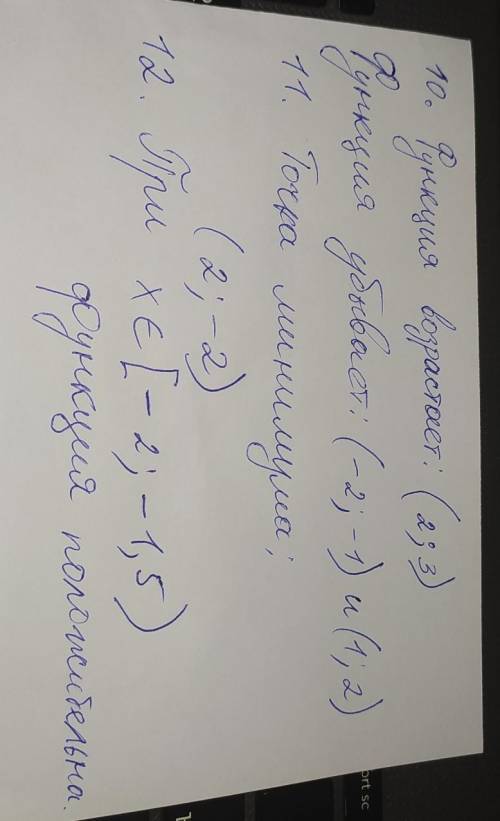 10. Функция возрастает: (2; 3)
Функция убывает: (-2; -1) и (1; 2)
11. Точка минимума;
(2; -2)
12. При x ∈ [-2; -1,5)
функция положительна.
ort sc